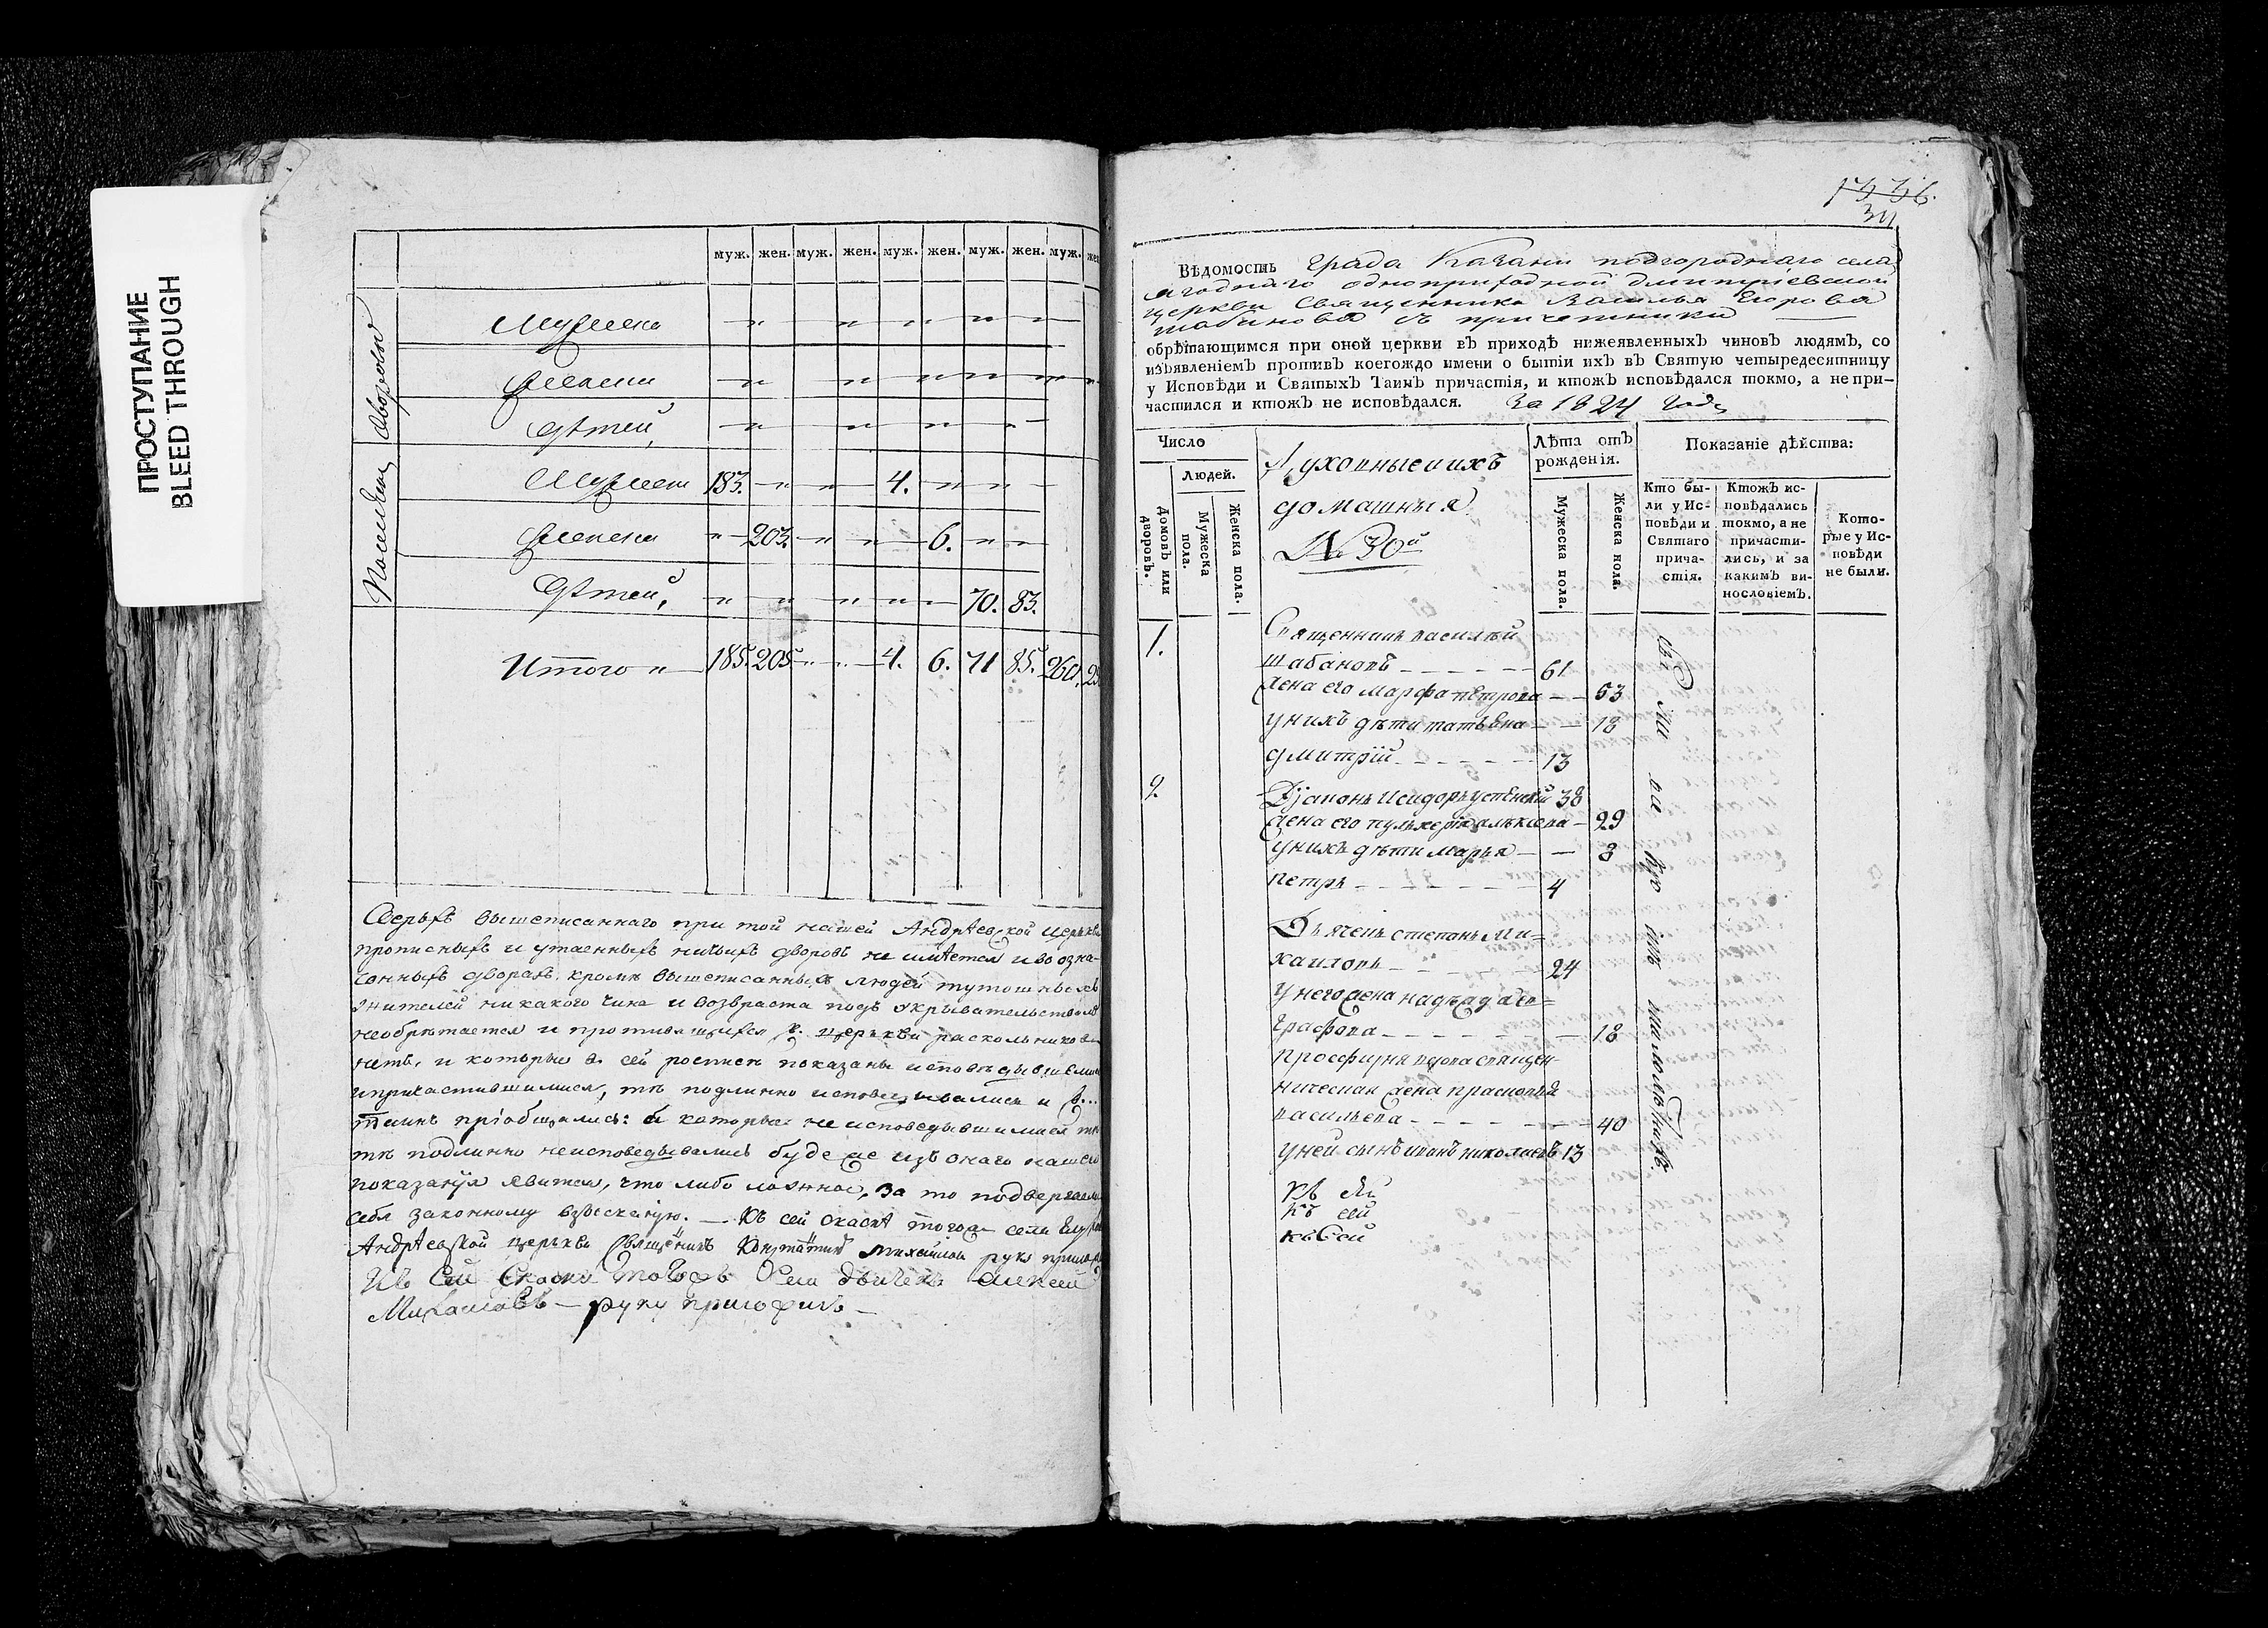 ПРОСТУПАНИЕ
BLEED THROUGH
муж. жен. муж. жен. муж. жен. муж. жен. муж. жен
Дворовыхъ
Мужеска „ „ „ „ „
Женска „ „ „ „ „ „
Дѣтей, „ „ „ „
Мужеска 183. „ „ 4. „ „ „
Женска „ 203. „ „ 6. „ „
Дѣтей, „ „ „ „ 70. 83.
Итого „ 185. 205 „ „ 4. 6. 71 85. 260.
Сверьхъ вышеписаннаго при той нашей Андрѣевской церькви
прописныхъ и утаенныхъ ничьихъ дворовъ не имѣется и во озна-
ченныхъ дворахъ кромѣ вышеписанныхъ людей тутошныхъ
жителей никакого чина и возвраста подъ укрывательствомъ
необрѣтается и противящихся С. церькви раскольниковъ
нетъ, и которые въ сей росписи показаны исповѣдывшимися
и причастившимися, тѣ подлинно исповедывались и С...
Таинъ пріобщались: а которые не исповедывшимися
тѣ подлинно неисповедывались буде же изъ онаго нашего
показанія явится, что либо ложное, за то подвергаемъ
себя законному взысканію. — Къ сей скаскѣ тогожъ села
Андрѣевской церькви Священникъ Констатинъ Михайловъ руку приложилъ
Къ сей Скаски тогожъ Села дьячекъ Алексей
Михайловъ — руку приложилъ —
1336.
311
Вѣдомость града Казани подгороднаго села
Ягоднаго одноприходной Дмитріевской
церкви Священника Василья Егорова
Шабанова съ причетники
обрѣтающимся при оной церкви въ приходѣ нижеявленныхъ чиновъ людямъ, со
изъявленіемъ противъ коегождо имени о бытіи ихъ въ Святую четыредесятницу
у Исповѣди и Святыхъ Таинъ причастія, и ктожъ исповѣдался токмо, а не при-
частился и ктожъ не исповѣдался. За 1824 годъ
Число
Людей.
Домовъ или дворовъ.
Мужеска пола.
Женска пола.
Духовные и ихъ
домашныя
№ 30й
Лѣта отъ рожденія.
Мужеска пола.
Женска пола.
Показаніе дѣйства:
Кто бы-
ли у Ис-
повѣди и
Святаго
прича-
стія.
Ктожъ ис-
повѣдались
токмо, а не
причасти-
лись, и за
какимъ ви-
нословіемъ.
Кото-
рые у Ис-
повѣди
не были.
1. Священникъ василей
шабановъ 61
жена его марфа петрова 53
у нихъ дѣти татьяна 18
дмитрій 13
2. Діаконъ Исидоръ успенскій 38
жена его пульхерія алексѣева 29
у нихъ дѣти марья 8
петръ 4
Дьячекъ степанъ Ми=
хаиловъ 24
у него жена надежда ев=
графова 18
просфирня вдова священ-
ническая жена прасковья
васильева 40
у ней сынъ иванъ николаевъ 13
къ сей
къ сей
къ Сей